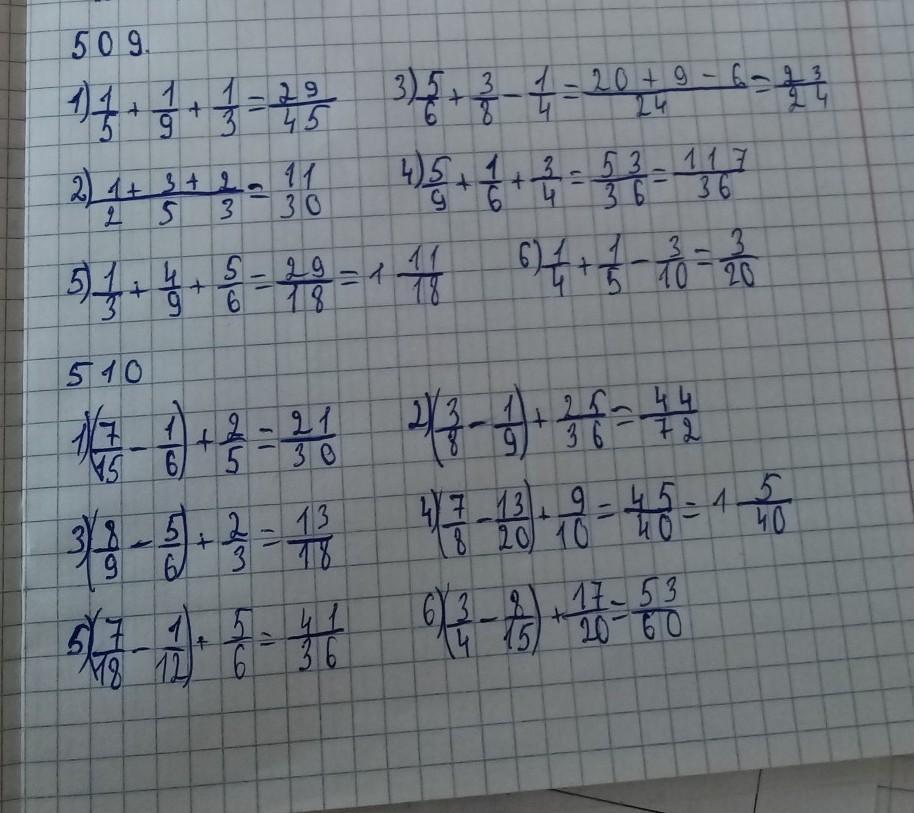 509.
1) 1/5 + 1/9 + 1/3 = 29/45 3) 5/6 + 3/8 - 1/4 = (20 + 9 - 6)/24 = 23/24
2) 1/2 + 3/5 + 2/3 = 11/30 4) 5/9 + 1/6 + 3/4 = 53/36 = 117/36
5) 1/3 + 4/9 + 5/6 = 29/18 = 1 11/18 6) 1/4 + 1/5 - 3/10 = 3/20
510
1) (7/15 - 1/6) + 2/5 = 21/30 2) (3/8 - 1/9) + 25/36 = 44/72
3) (8/9 - 5/6) + 2/3 = 13/18 4) (7/8 - 13/20) + 9/10 = 45/40 = 1 5/40
5) (7/18 - 1/12) + 5/6 = 41/36 6) (3/4 - 8/15) + 17/20 = 53/60